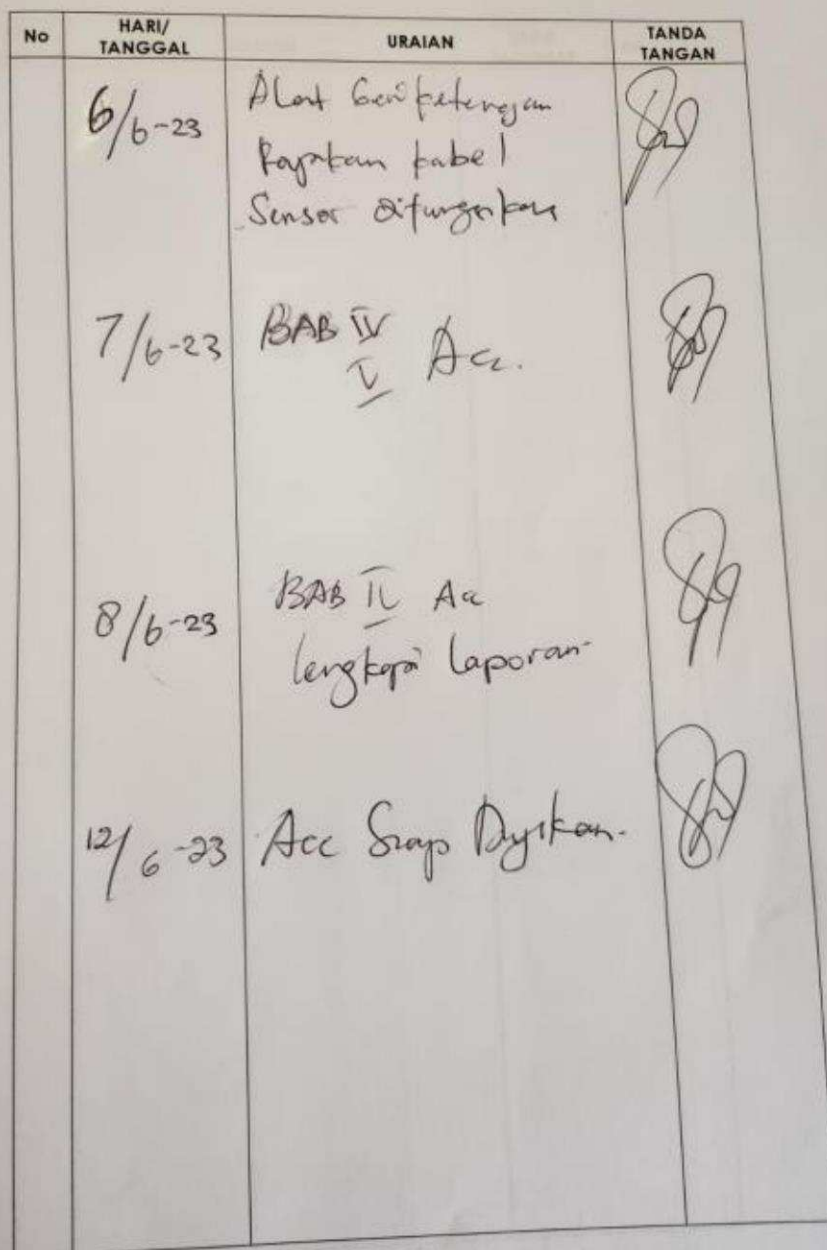 No HARI/ TANGGAL URAIAN TANDA TANGAN
6/6-23 Alat beri keterangan
Rapikan kabel
Sensor difungsikan
7/6-23 BAB IV
V Acc.
8/6-23 BAB IV Acc
lengkapi laporan-
12/6-23 Acc Siap Diujikan-